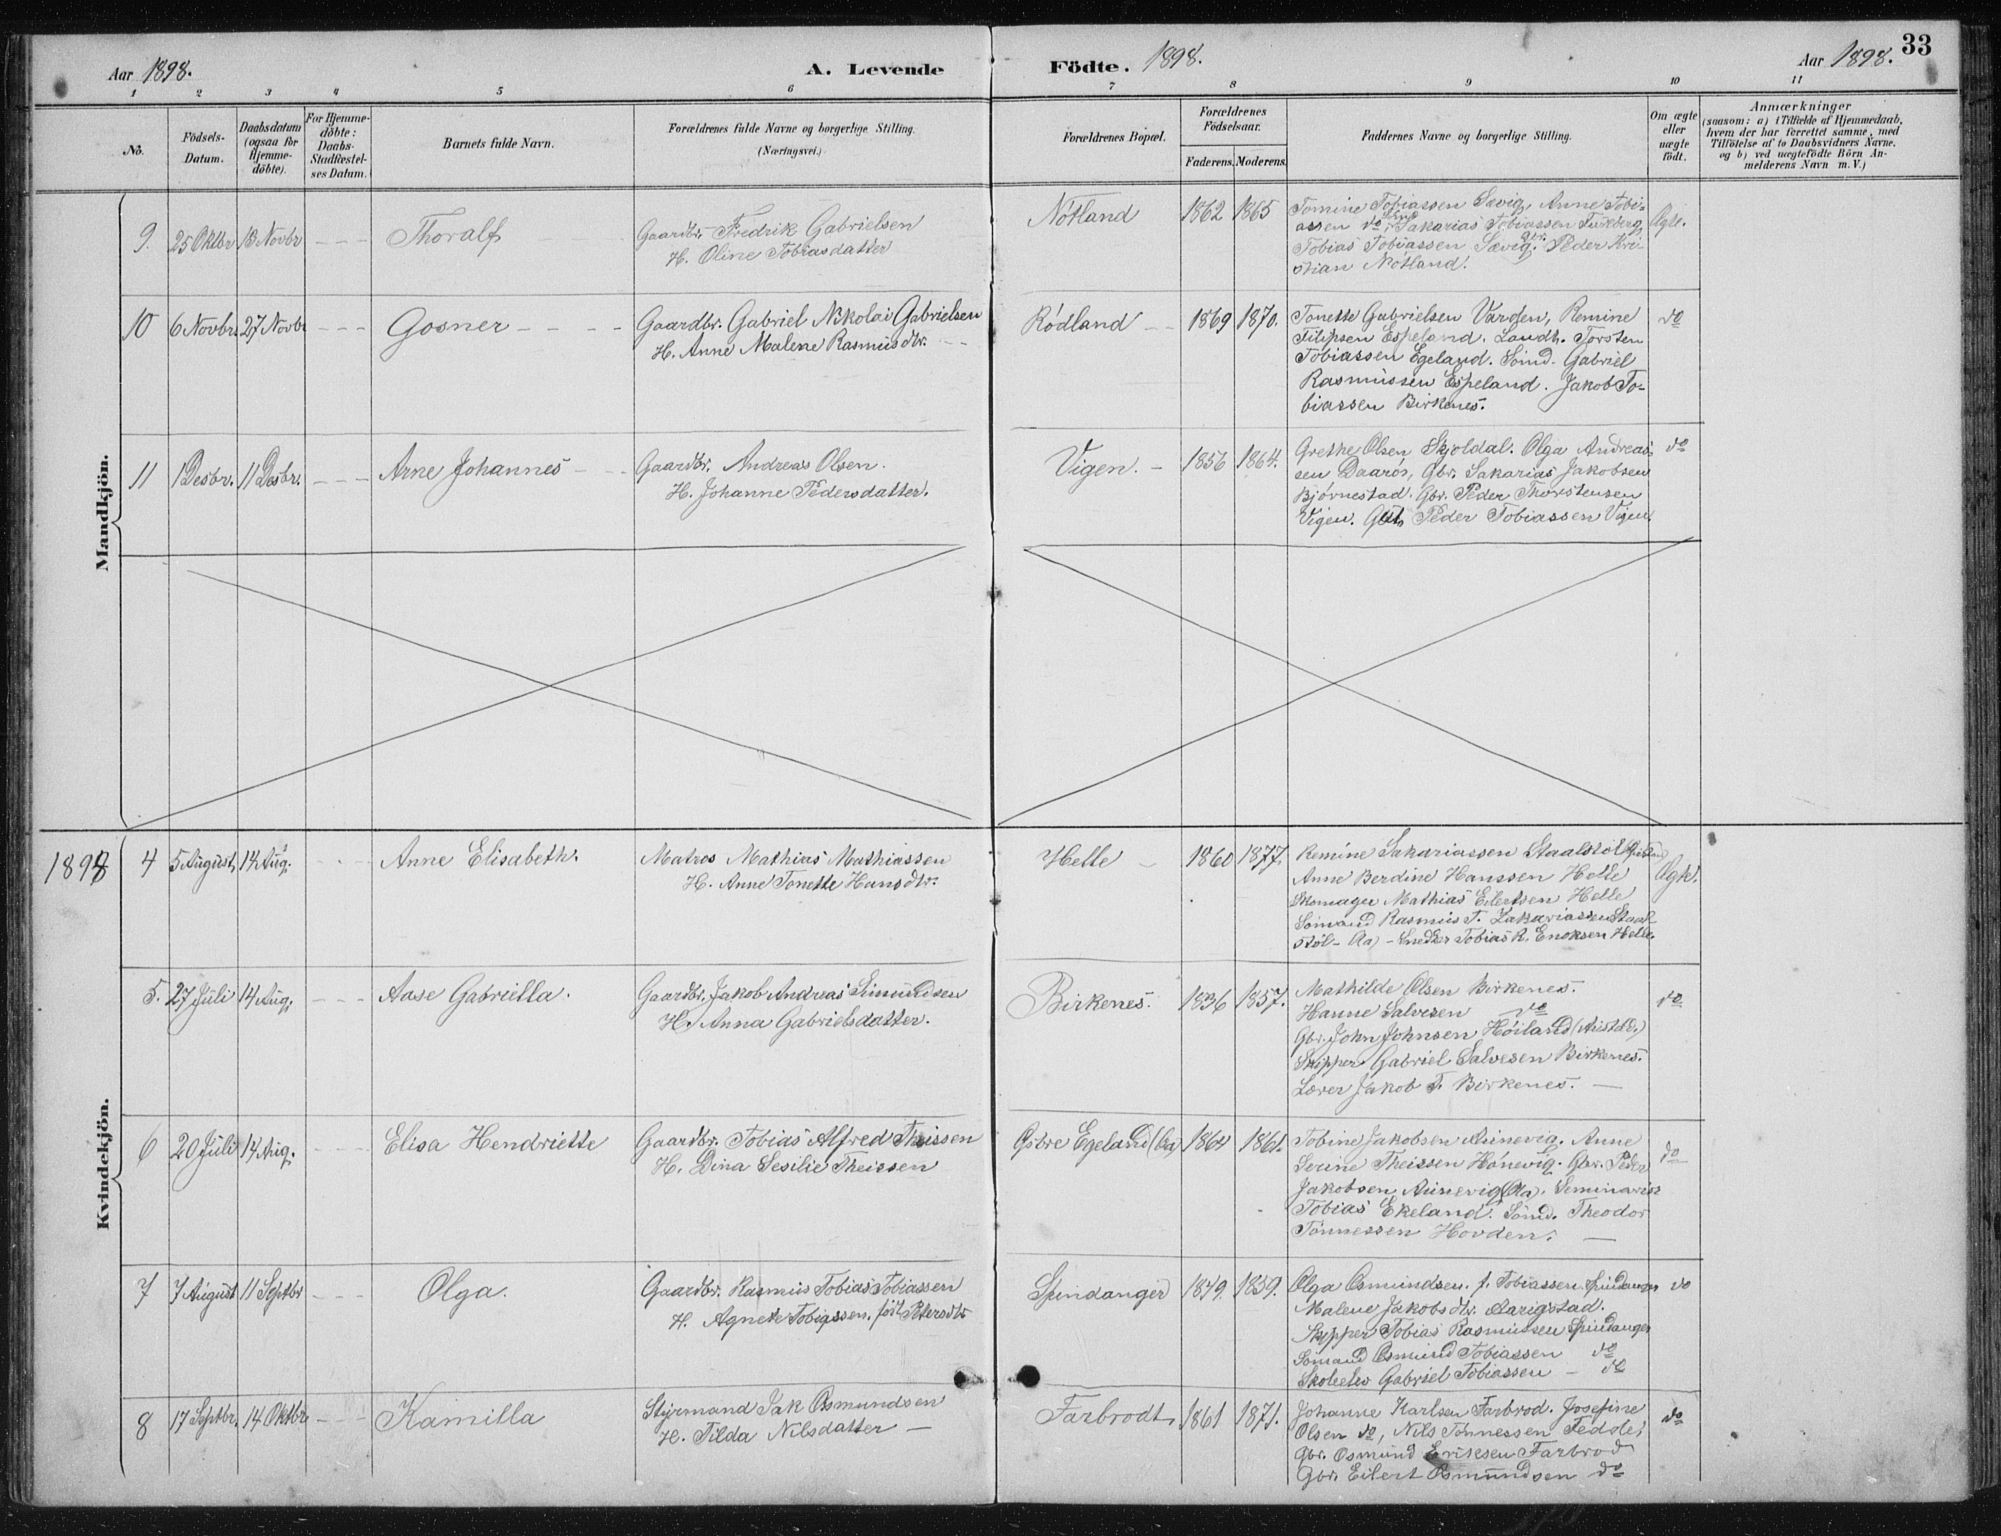 33
Aar 1898.
A. Levende
Födte. 1898.
Aar 1898.
1 2 3 4 5 6 7 8 9 10 11
No.
Födsels-Datum.
Daabsdatum (ogsaa for Hjemme-döbte).
For Hjemme-döbte: Daabs-Stadfæstel-ses Datum.
Barnets fulde Navn.
Forældrenes fulde Navne og borgerlige Stilling.
(Næringsvei.)
Forældrenes Bopæl.
Forældrenes Födselsaar.
Faderens. Moderens.
Faddernes Navne og borgerlige Stilling.
Om ægte eller uægte födt.
Anmærkninger
(saasom: a) i Tilfælde af Hjemmedaab,
hvem der har forrettet samme, med
Tilföielse af to Daabsvidners Navne,
og b) ved uægtefödte Börn An-
melderens Navn m. V.)
Mandkjön.
9. 25 Oktbr 13 Novbr - - - Thoralf
Gaardbr. Fredrik Gabrielsen
H. Oline Tobiasdatter
Nötland 1862 1865
Tomine Tobiassen Sævig, Anne Tobi-
assen do, Sakarias Tobiassen
Tobias Tobiassen Sævig. Gbr. Peder Kri-
stian Nötland.
Ægte.
10 6 Novbr. 27 Novbr - - - Gosner - - - -
Gaardbr. Gabriel Nikolai Gabrielsen
H. Anne Malene Rasmusdtr. - -
Rödland - - 1869 1870.
Tonette Gabrielsen Varden, Remine
Filipsen Espeland. Landh. Torsten
Tobiassen Egeland. Sömd. Gabriel
Rasmussen Espeland. Jakob To-
biassen Birkenes.
do
11 1 Desbr. 11 Desbr. - - - Arne Johannes - -
Gaardbr. Andreas Olsen.
H. Johanne Pedersdatter.
Vigen. - 1856 1864.
Grethe Olsen Skjoldal. Olga Andreas-
sen, Daarös, Gbr. Sakarias Jakobsen
Bjørnestad. Gbr. Peder Thorstensen
Vigen. Peder Tobiassen Vigen.
do
1898
Kvindekjön.
4 5 August, 14 Aug. - - - Anne Elisabeth.
Matros Mathias Mathiassen
H. Anne Tonette Hansdtr.
Helle - 1860 1877.
Remine Sakariassen Staalstöl
Anne Berdine Hanssen Helle
Skomager Mathias Eilertsen Helle
Sömand Rasmus T. Zakariassen Staal-
stöl - Aa) - Snedker Tobias R. Enoksen Helle.
5. 27 Juli 14 Aug. - - - Aase Gabriella.
Gaardbr. Jakob Andreas Simundsen
H. Anna Gabrielsdatter.
Birkenes. 1836 1857.
Mathilde Olsen Birkenes.
Hanne Salvesen do
Gbr. John Johnsen Höiland
Skipper Gabriel Salvesen Birkenes.
Lærer Jakob T. Birkenes. -
do
6 20 Juli 14 Aug. - - - Elisa Hendriette
Gaardbr. Tobias Alfred Theissen
H. Dina Sesilie Theissen
Østre Egeland (Aa) 1864 1861.
Tobine Jakobsen Aunevig. Anne
Serine Theissen Hönevig. Gbr. Peder
Jakobsen Aunevig (Aa). Seminarist
Tobias Ekeland. Sömd. Theodor
Tönnessen Hovden. -
do
7 7 August 11 Septbr - - - Olga.
Gaardbr. Rasmus Tobias Tobiassen
H. Agnete Tobiassen. föd Petersdtr
Spindanger 1849. 1859.
Olga Osmundsen. f. Tobiassen. Spindanger
Malene Jakobsdtr. Aarigstad.
Skipper Tobias Rasmussen Spindanger
Sömand Osmund Tobiassen do
Skoleelev Gabriel Tobiassen - do
do
8 17 Septbr. 14 Oktbr - - - Kamilla
Styrmand Jak Osmundsen
H. Tilda Nilsdatter -
Farbrodt 1861 1871.
Johanne Karlsen Farbrod. Josefine
Olsen do, Nils Tönnessen Fedde,
Gbr. Osmund Eriksen Farbrod
Gbr. Eilert Osmundsen do
do